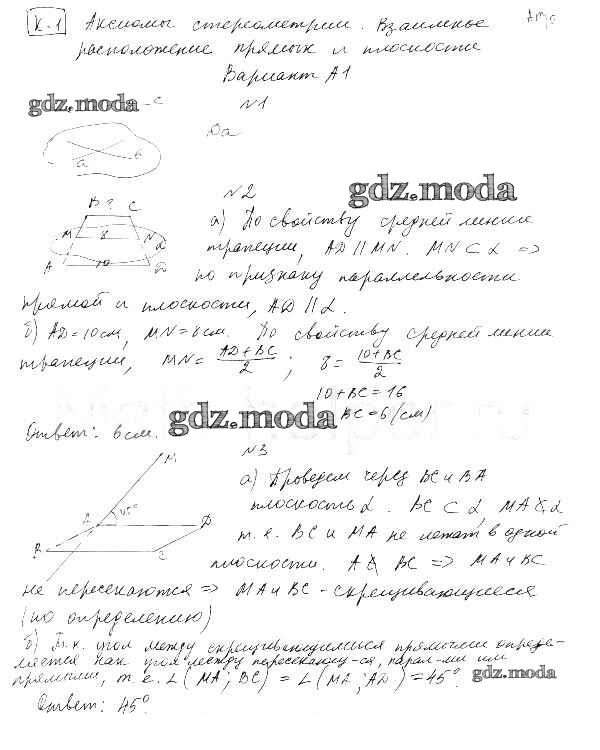 К-1 Аксиомы стереометрии. Взаимное
расположение прямых и плоскости
Вариант А1
gdz.moda
с
N1
а в
Да
N2
gdz.moda
B ? C
M 8 N α
A 10 D
а) По свойству средней линии
трапеции, AD || MN. MN ⊂ α =>
по признаку параллельности
прямой и плоскости, AD || α.
б) AD=10см, MN=8см. По свойству средней линии
трапеции, MN = AD+BC/2 ; 8 = 10+BC/2
10+BC=16
BC=6(см)
gdz.moda
Ответ: 6см.
N3
M
A 45° D
B C
а) Проведем через BC и BA
плоскость α. BC ⊂ α, MA ⊄ α
т.е. BC и MA не лежат в одной
плоскости. A ∉ BC => MA и BC
не пересекаются => MA и BC - скрещивающиеся
(по определению)
б) Т.к. угол между скрещивающимися прямыми опреде-
ляется как угол между пересекающ-ся, парал-ми им
прямыми, т.е. ∠(MA; BC) = ∠(MA; AD) = 45°.
gdz.moda
Ответ: 45°